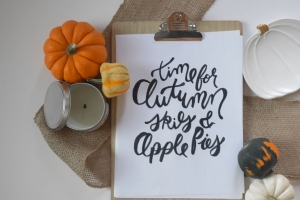 time for
Autumn
skies &
Apple Pies